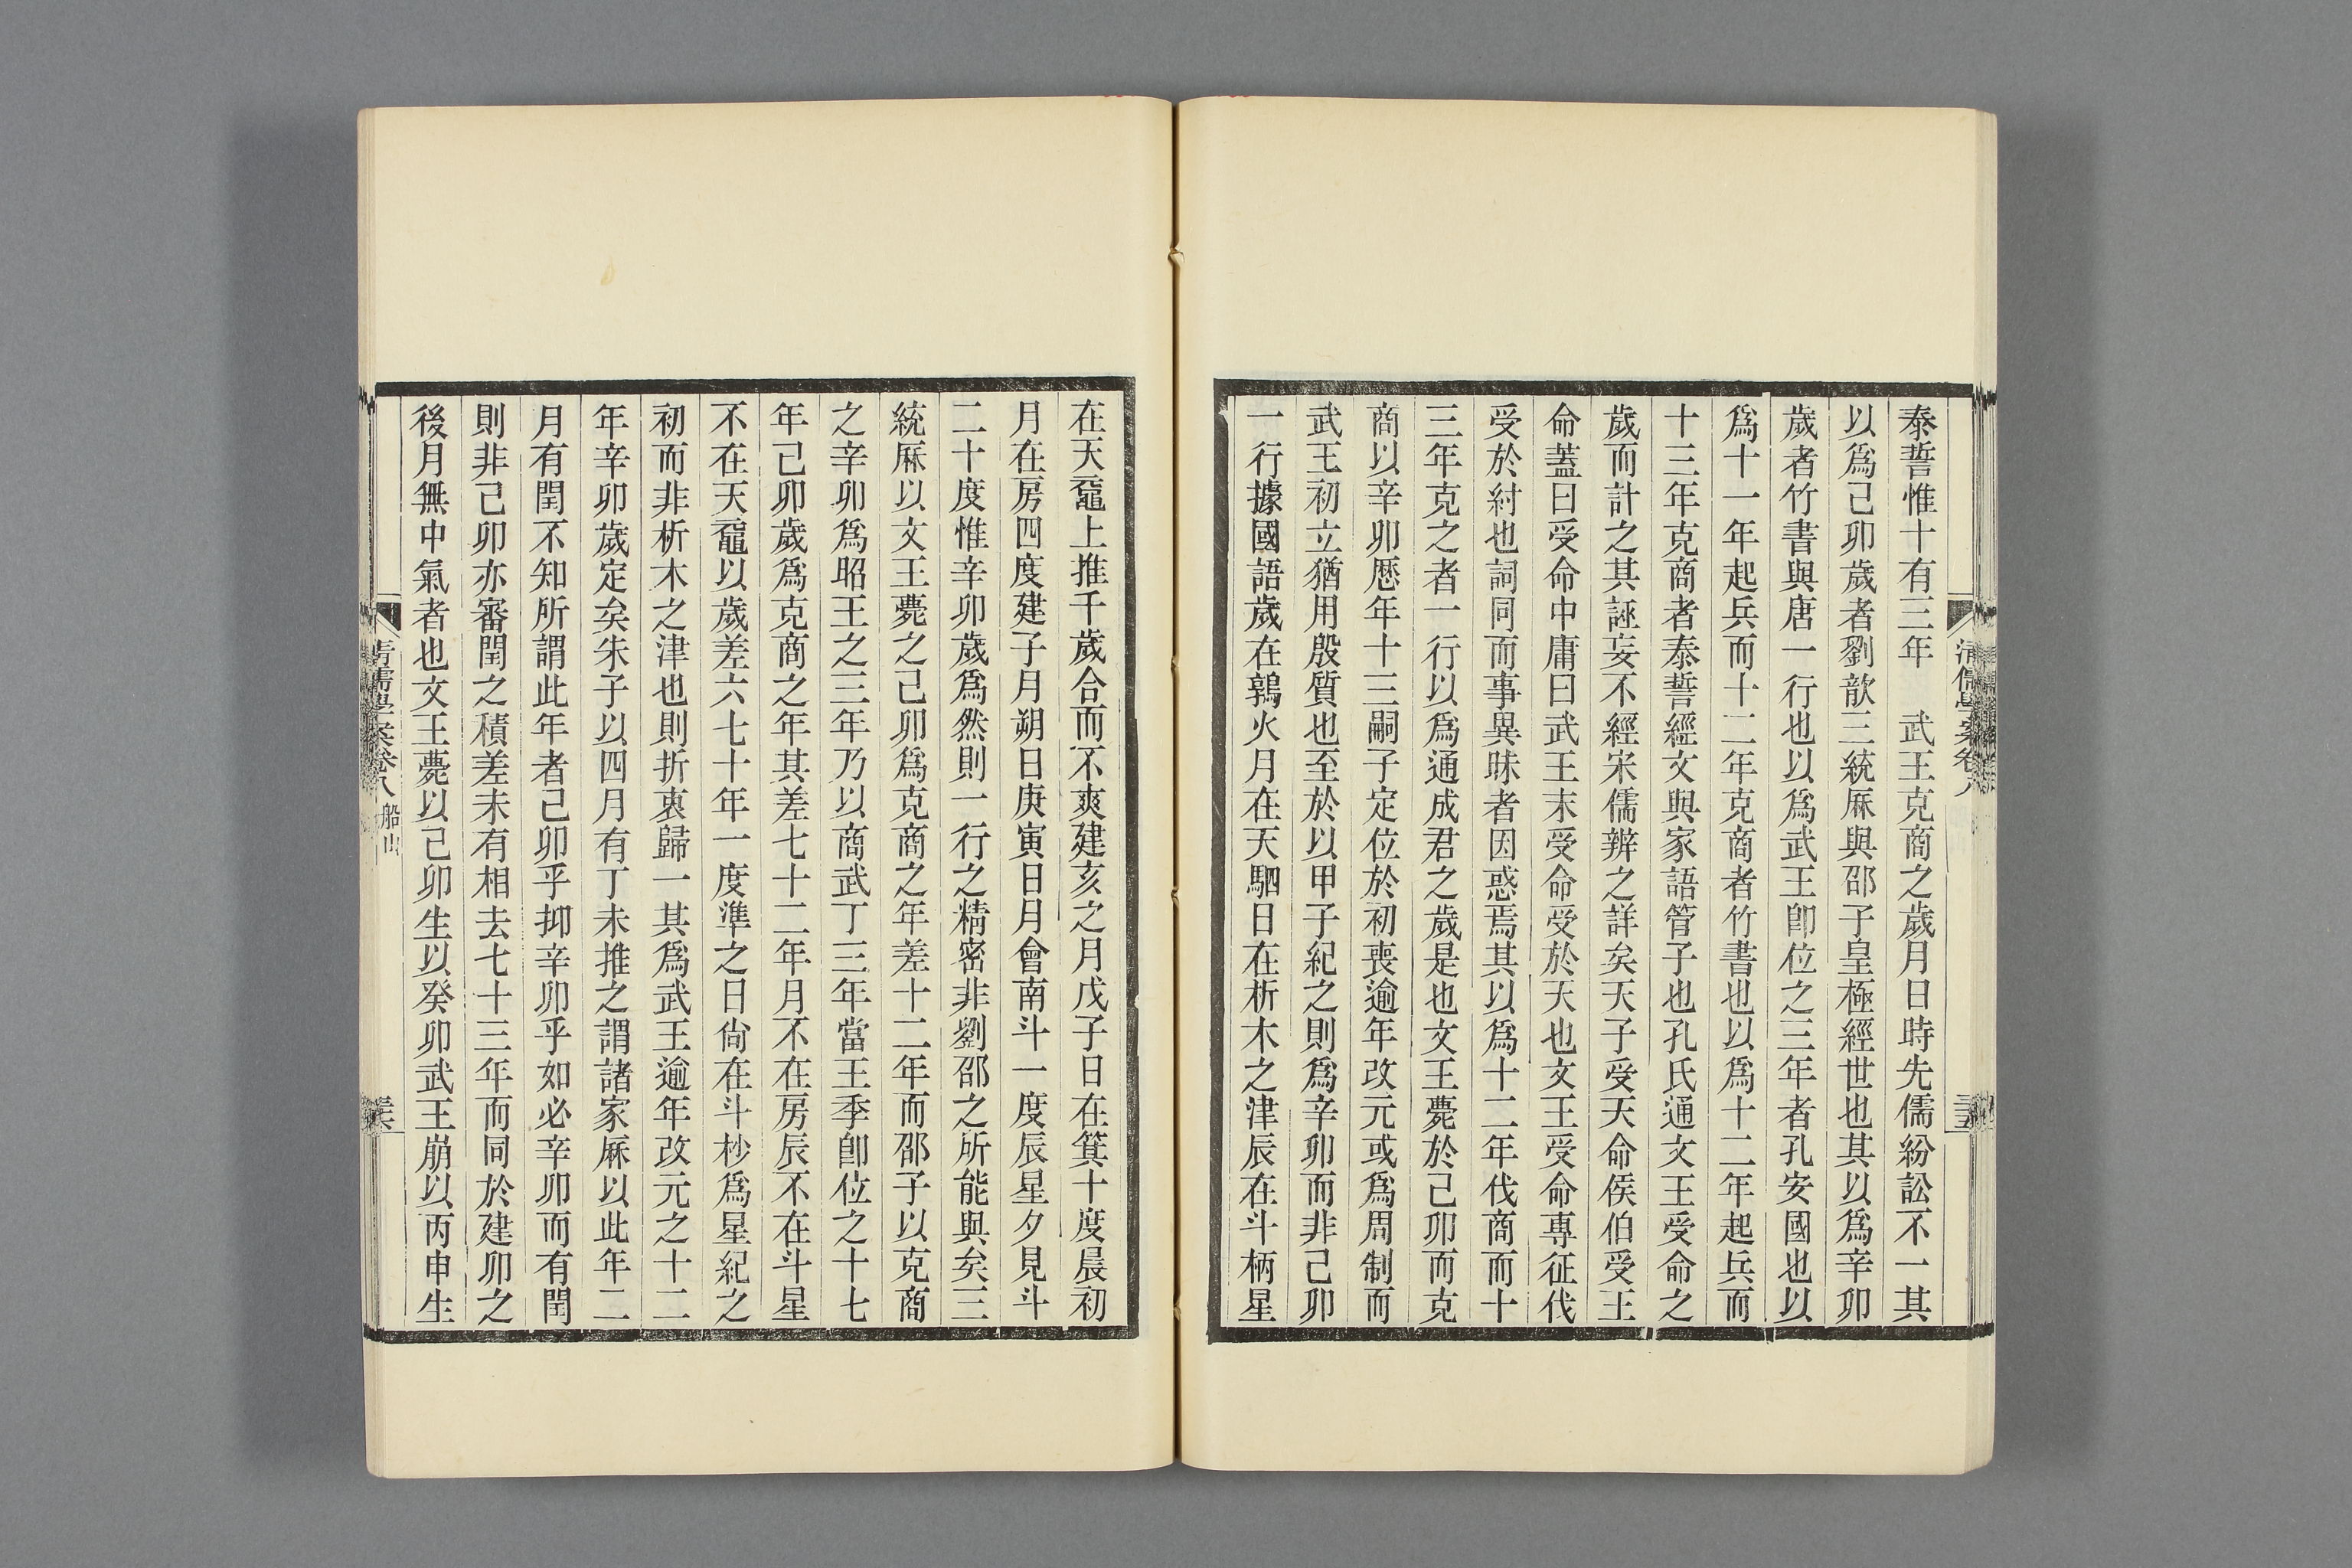 泰誓惟十有三年　武王克商之歲月日時先儒紛訟不一其
以爲己卯歲者劉歆三統厤與邵子皇極經世也其以爲辛卯
歲者竹書與唐一行也以爲武王卽位之三年者孔安國也以
爲十一年起兵而十二年克商者竹書也以爲十二年起兵而
十三年克商者泰誓經文與家語管子也孔氏通文王受命之
歲而計之其誣妄不經宋儒辨之詳矣天子受天命侯伯受王
命蓋曰受命中庸曰武王末受命受於天也文王受命專征伐
受於紂也詞同而事異昧者因惑焉其以爲十二年伐商而十
三年克之者一行以爲通成君之歲是也文王薨於己卯而克
商以辛卯歷年十三嗣子定位於初喪逾年改元或爲周制而
武王初立猶用殷質也至於以甲子紀之則爲辛卯而非己卯
一行據國語歲在鶉火月在天駟日在析木之津辰在斗柄星
在天黿上推千歲合而不爽建亥之月戊子日在箕十度晨初
月在房四度建子月朔日庚寅日月會南斗一度辰星夕見斗
二十度惟辛卯歲爲然則一行之精密非劉邵之所能與矣三
統厤以文王薨之己卯爲克商之年差十二年而邵子以克商
之辛卯爲昭王之三年乃以商武丁三年當王季卽位之十七
年己卯歲爲克商之年其差七十二年月不在房辰不在斗星
不在天黿以歲差六七十年一度準之日尙在斗杪爲星紀之
初而非析木之津也則折衷歸一其爲武王逾年改元之十二
年辛卯歲定矣朱子以四月有丁未推之謂諸家厤以此年二
月有閏不知所謂此年者己卯乎抑辛卯乎如必辛卯而有閏
則非己卯亦審閏之積差未有相去七十三年而同於建卯之
後月無中氣者也文王薨以己卯生以癸卯武王崩以丙申生
清儒學案卷八
清儒學案卷八　船山